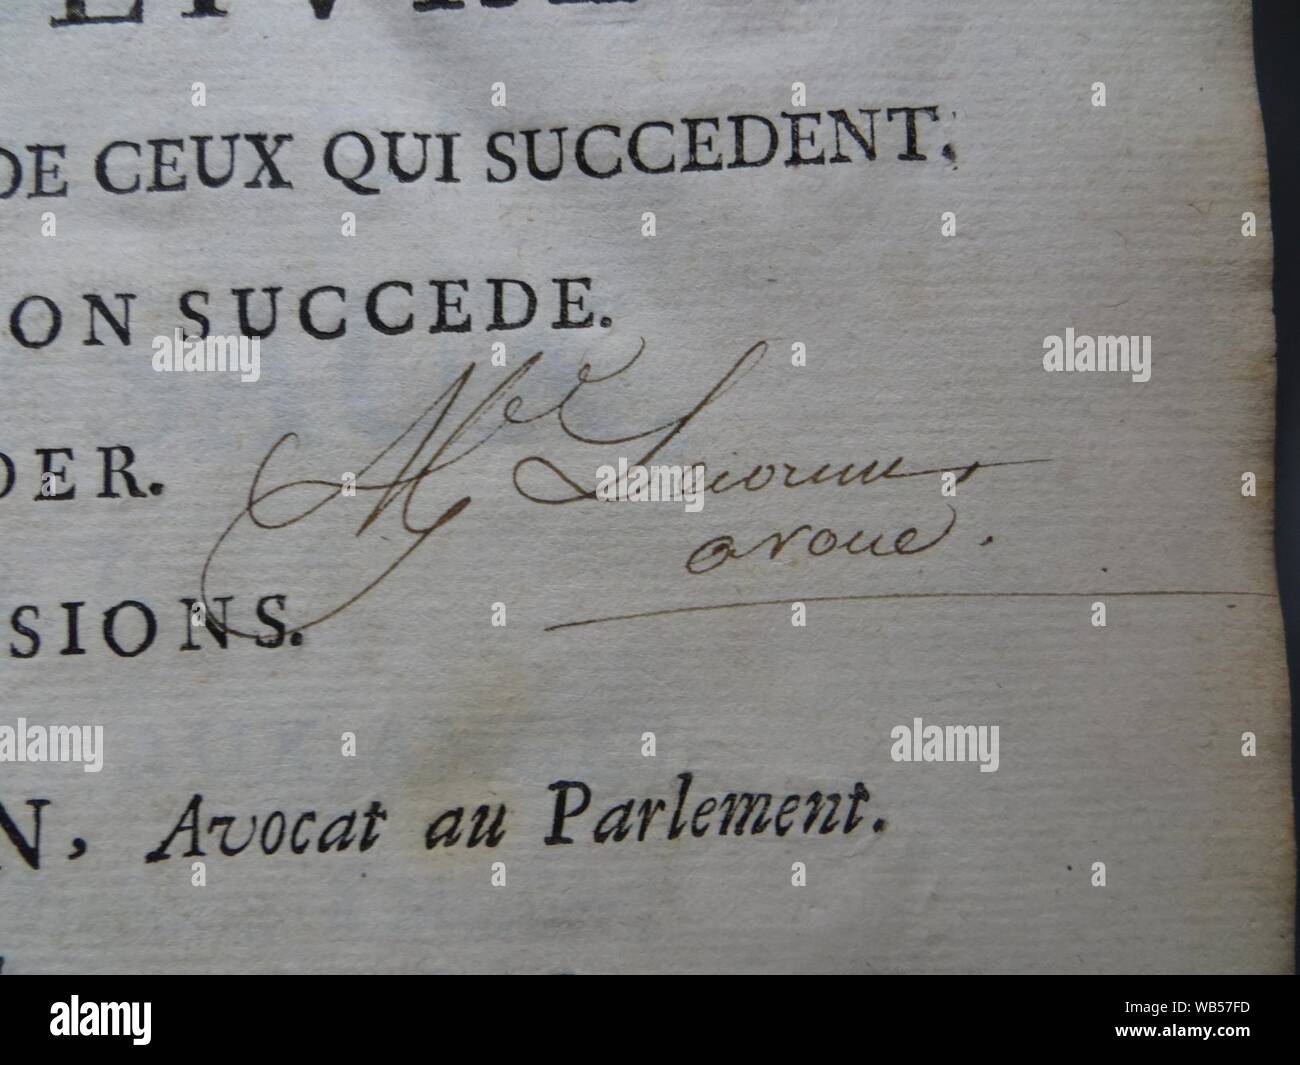 DE CEUX QUI SUCCEDENT.
ON SUCCEDE.
DER.
Me
avoué.
SIONS.
N, Avocat au Parlement.
alamy
alamy
alamy
alamy
a alamy
Image ID: WB57FD
www.alamy.com